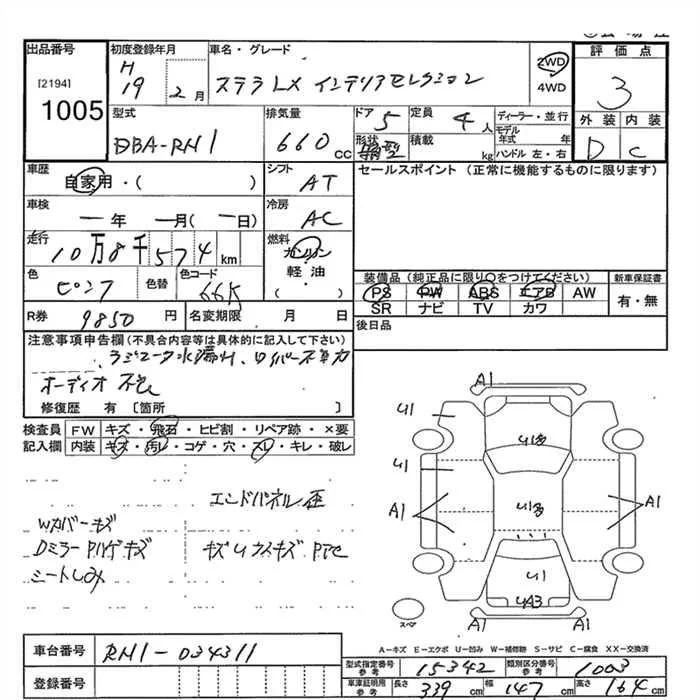 出品番号 初度登録年月 車名・グレード 評価点
[2194] H 19 2月 ステラ LX インテリアセレクション 2WD 3
1005 4WD
型式 排気量 ドア 定員 ディーラー・並行 外装 内装
DBA-RN1 660 cc 5 4人 モデル年式 年 D C
形状 積載 kg ハンドル 左・右
車歴 シフト セールスポイント (正常に機能するものに限ります)
自家用・( ) AT
車検 冷房
年 月( 日) AC
走行 燃料
10万8千574km ガソリン
軽油
( )
色 ピンク 色替 色コード 装備品 (純正品に限り○をつけてください) 新車保証書
PS PW ABS エアB AW 有・無
SR ナビ TV カワ
R券 9850円 名変期限 月 日 後日品
注意事項申告欄(不具合内容等は具体的に記入して下さい)
ラジエータ水漏れ、ワイパー不動
オーディオ
修復歴 有 [箇所 ]
検査員 FW キズ・飛石・ヒビ割・リペア跡・×要
記入欄 内装 キズ・汚レ・コゲ・穴・スレ・キレ・破レ
エンドパネル歪
Wカバーキズ
Dミラー キズ
シートしみ
A1
U1
U1
A1
A1
U1
A-キズ E-エクボ U-凹み W-補修跡 S-サビ C-腐食 XX-交換済
スペア
車台番号 RN1-034311
型式指定番号 参考 15342 類別区分番号 参考 1003
登録番号 車庫証明用 参考 長さ 339cm 幅 147cm 高さ 164cm